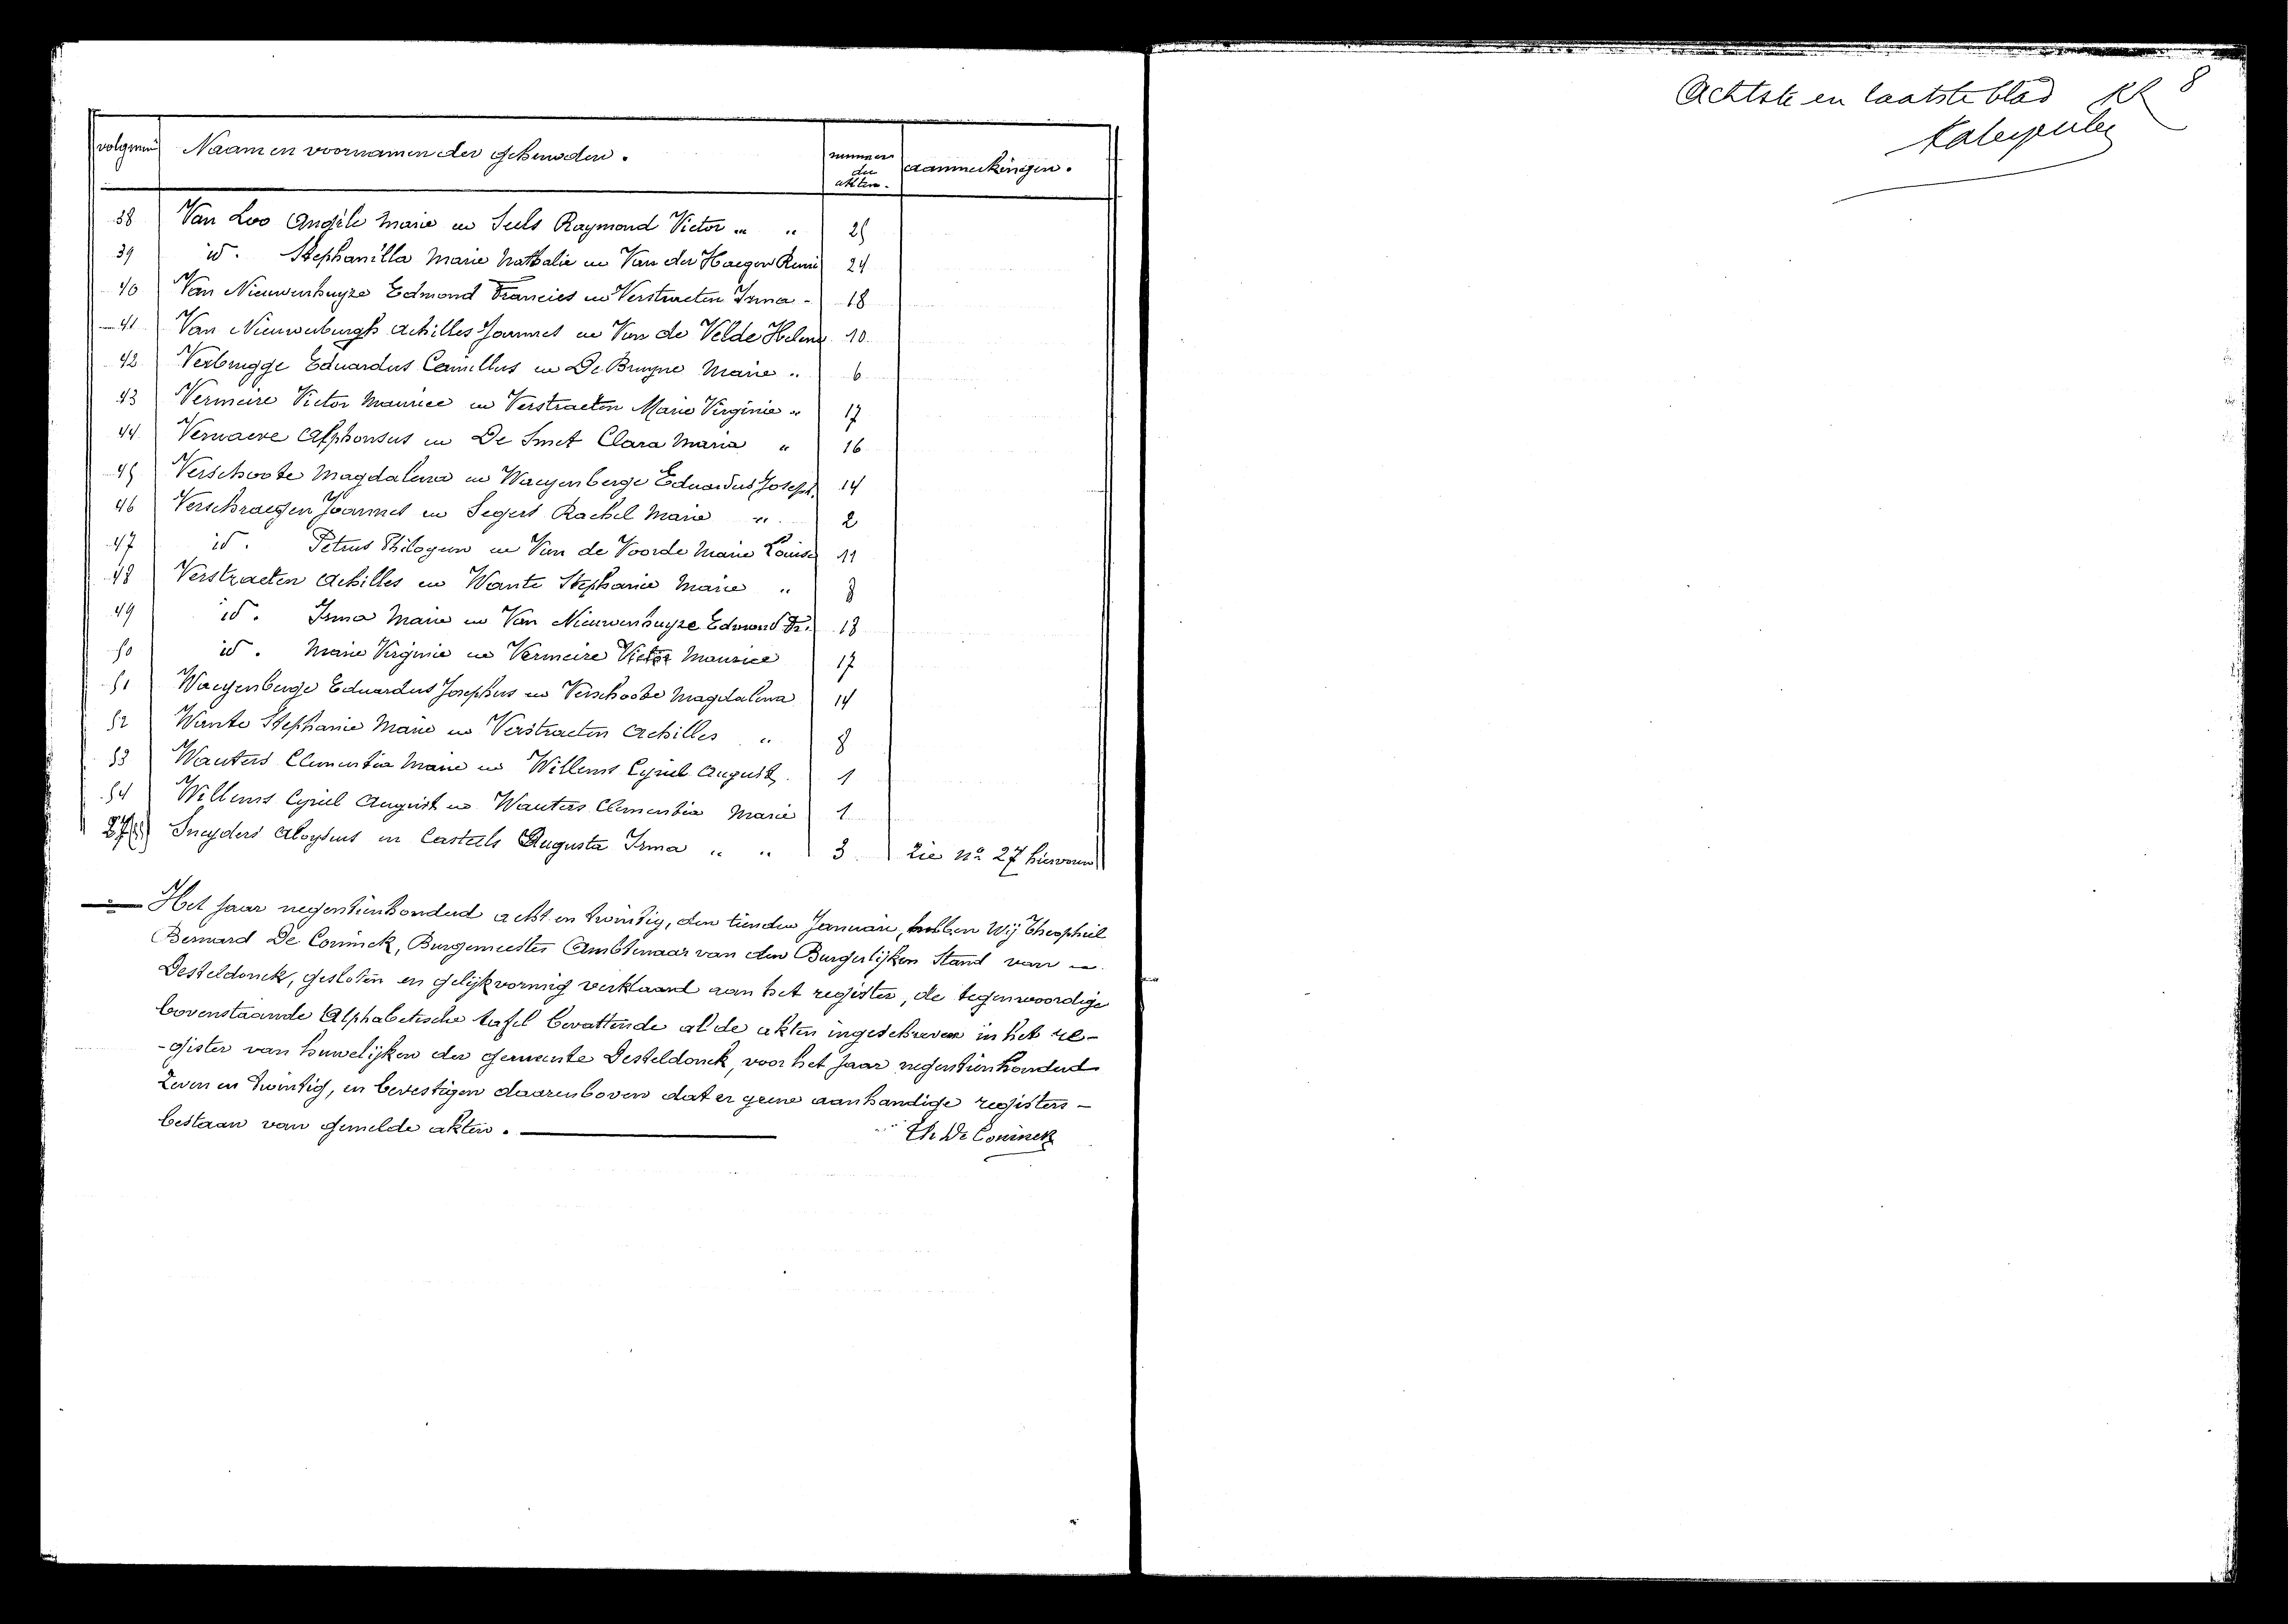 volgnum Naam en voornamen der gehuwden. nummer der akten. aanmerkingen.
38 Van Loo Angèle Marie en Seels Raymond Victor „ „ 25
39 id. Stephanilla Marie Nathalie en Van der Haegen René 24
40 Van Nieuwenhuyze Edmond Francies en Verstraeten Irma - 18
41 Van Nieuwenburgh Achilles Joannes en Van de Velde Helena 10
42 Verbrugge Eduardus Camillus en De Bruyne Marie „ 6
43 Vermeire Victor Maurice en Verstraeten Marie Virginie „ 17
44 Vernaeve Alphonsus en De Smet Clara Maria „ 16
45 Verschoote Magdalena en Waeyenberge Eduardus Joseph. 14
46 Verschraegen Joannes en Segers Rachel Marie „ 2
47 id. Petrus Philogeen en Van de Voorde Marie Louise 11
48 Verstraeten Achilles en Wante Stephanie Marie „ 8
49 id. Irma Marie en Van Nieuwenhuyze Edmond Fr. 18
50 id. Marie Virginie en Vermeire Victor Maurice 17
51 Waeyenberge Eduardus Josephus en Verschoote Magdalena 14
52 Wante Stephanie Marie en Verstraeten Achilles „ 8
53 Wauters Clementia Marie en Willems Cyriel August. 1
54 Willems Cyriel August en Wauters Clementia Marie 1
27(55) Sneyders Aloysius en Casteels Augusta Irma „ „ 3 Zie nº 27 hiervoren
Het jaar negentienhonderd acht en twintig, den tienden Januari, hebben Wij Theophiel
Bernard De Coninck, Burgemeester Ambtenaar van den Burgerlijken Stand van
Desteldonck, gesloten en gelijkvormig verklaard aan het register, de tegenwoordige
bovenstaande Alphabetische tafel bevattende al de akten ingeschreven in het re-
-gister van huwelijken der gemeente Desteldonck, voor het jaar negentienhonderd
Zeven en twintig, en bevestigen daarenboven dat er geene aanhandige registers -
bestaan van gemelde akten.
Th De Coninck
Achtste en laatste blad 8